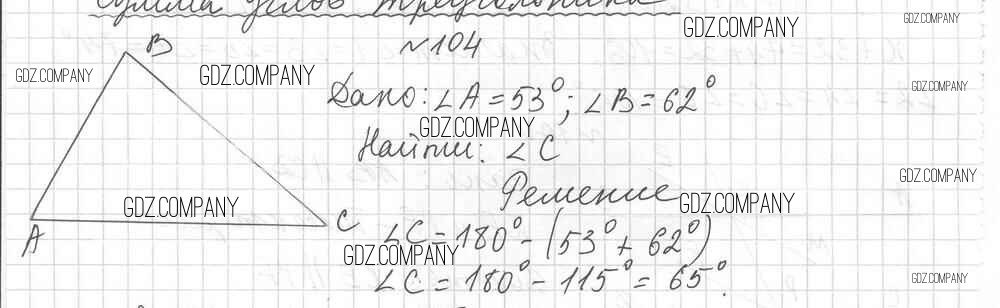 Сумма углов треугольника
№104
B
Дано: ∠A = 53°; ∠B = 62°
Найти: ∠C
Решение
A
C
∠C = 180° - (53° + 62°)
∠C = 180° - 115° = 65°.
GDZ.COMPANY
GDZ.COMPANY
GDZ.COMPANY
GDZ.COMPANY
GDZ.COMPANY
GDZ.COMPANY
GDZ.COMPANY
GDZ.COMPANY
GDZ.COMPANY
GDZ.COMPANY
GDZ.COMPANY